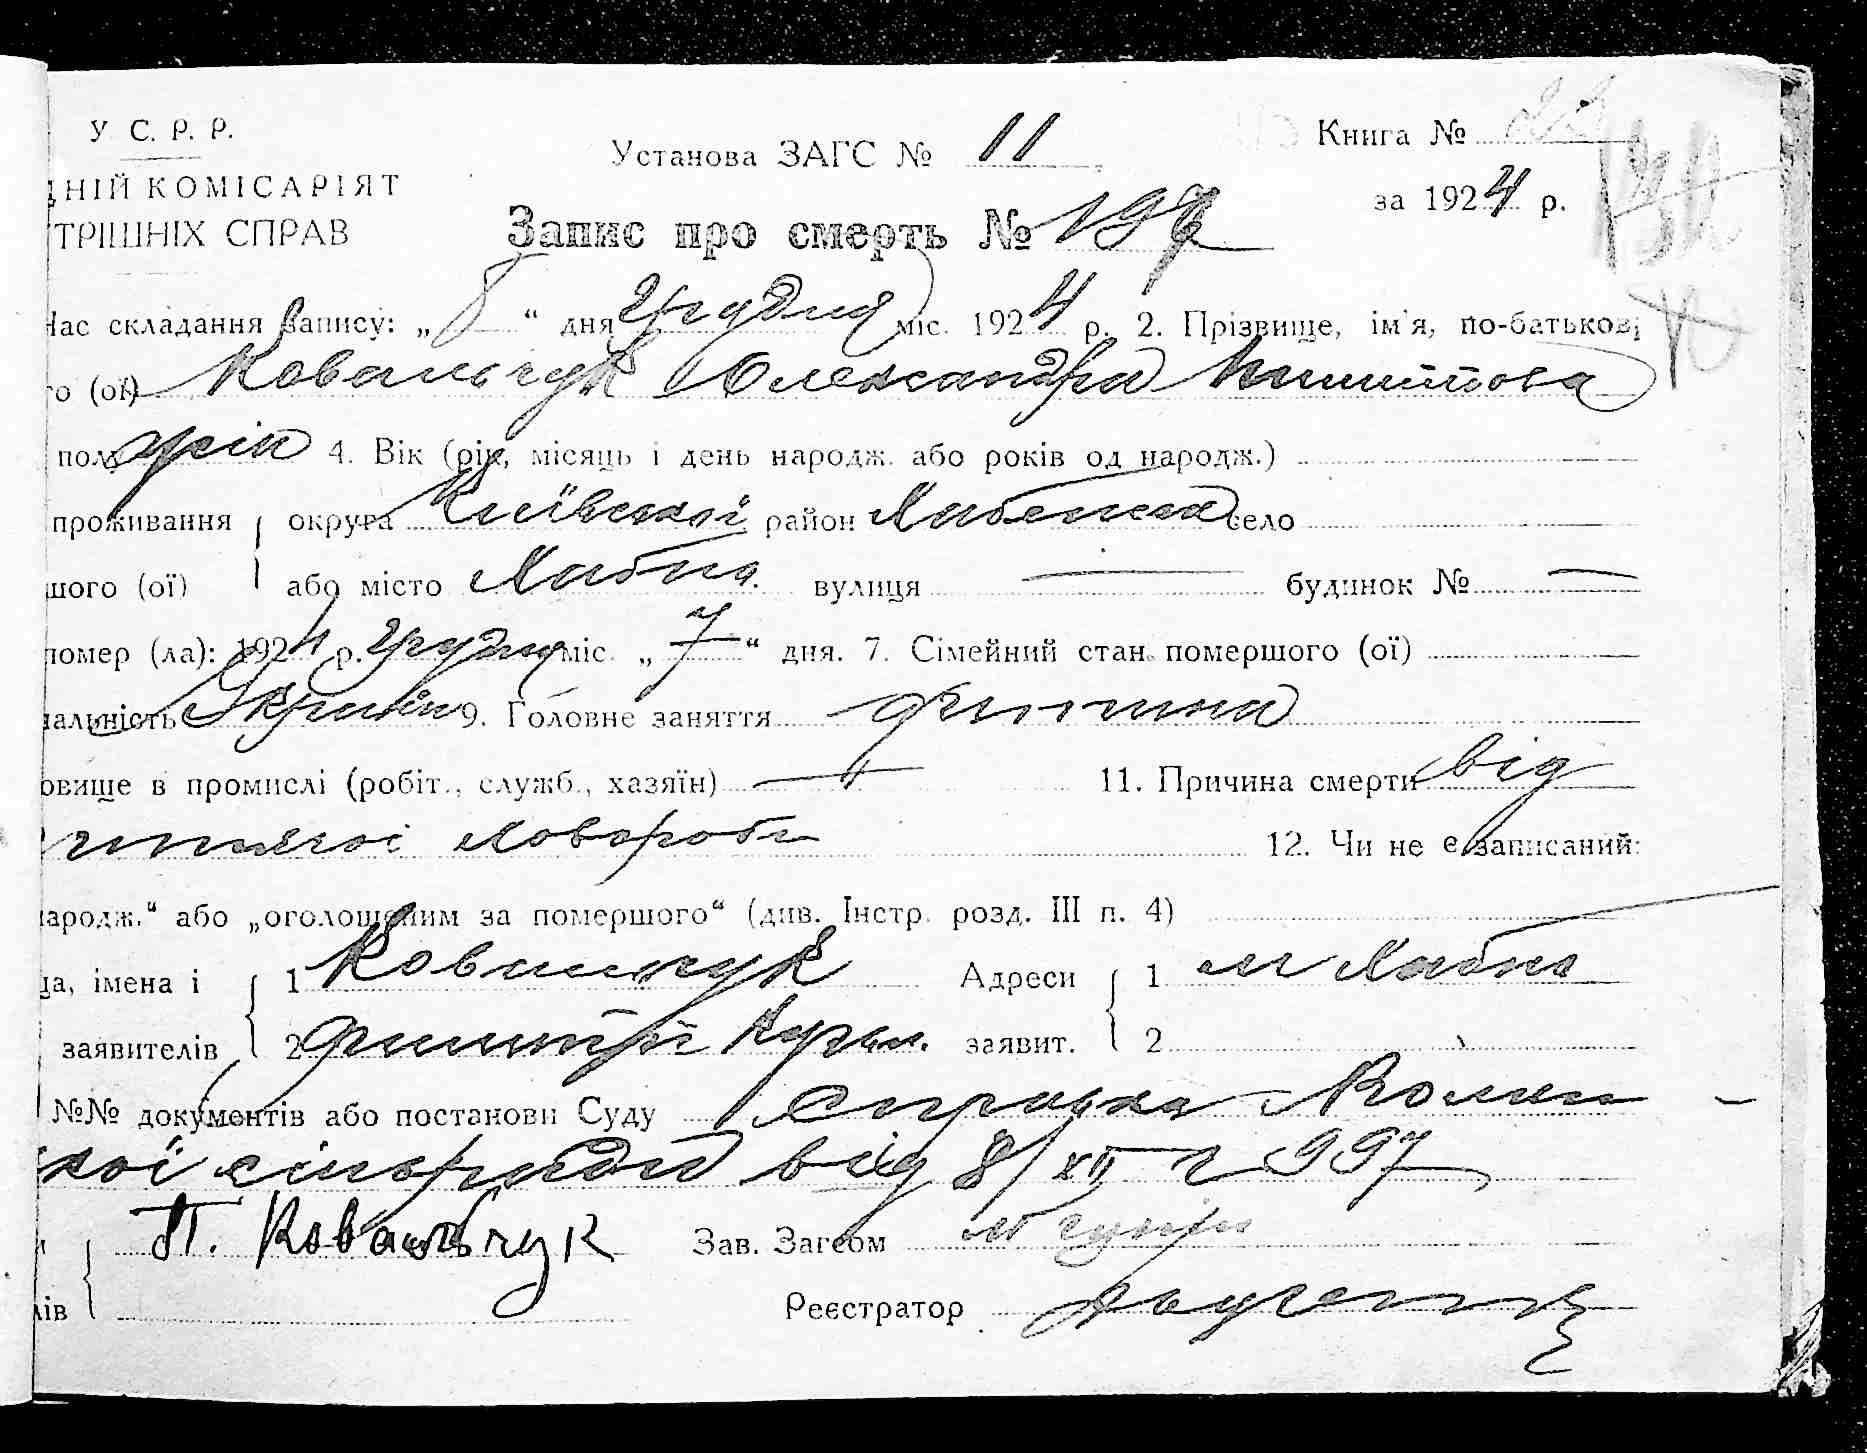 У С. Р. Р.
Установа ЗАГС № 11
Книга №
ДНІЙ КОМІСАРІЯТ
за 1924 р.
ТРІШНІХ СПРАВ
Запис про смерть № 197
Час складання запису: „8“ дня Грудня міс. 1924 р. 2. Прізвище, ім'я, по-батькові
го (ої) Ковальчук Олександра
пол жін 4. Вік (рік, місяць і день народж. або років од народж.)
проживання округа Київської район Хабенськ село
шого (ої) або місто Хабна вулиця — будинок № —
помер (ла): 1924 р. Грудня міс. „7“ дня. 7. Сімейний стан помершого (ої)
нальність Україн 9. Головне заняття дитина
овище в промислі (робіт., служб., хазяїн) — 11. Причина смерти від
12. Чи не є записаний:
народж.“ або „оголошеним за помершого“ (див. Інстр. розд. III п. 4)
ща, імена і 1 Ковальчук Адреси 1 м Хабна
заявителів 2 заявит. 2
№№ документів або постанови Суду Справка
кої сільради від 8/XII 997
П. Ковальчук Зав. Загсом
лів Реєстратор